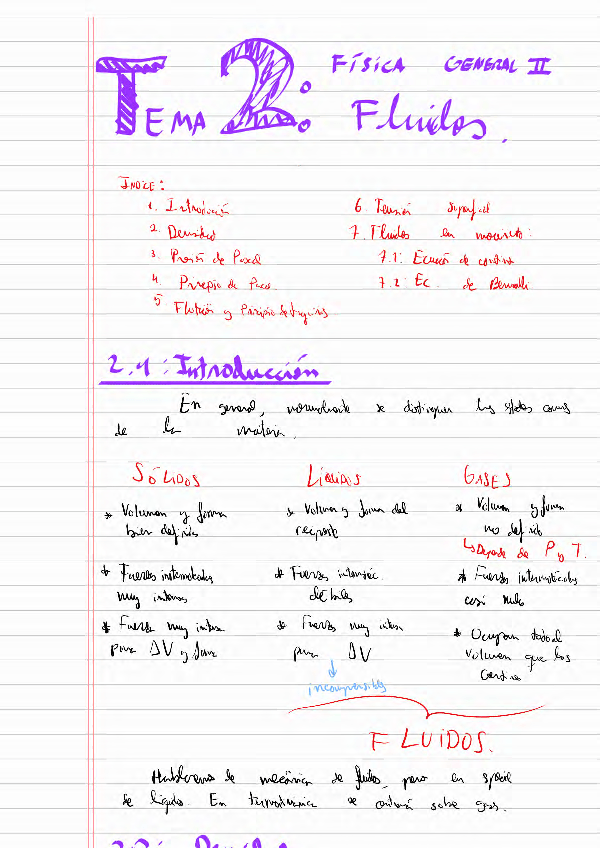 FÍSICA GENERAL II
TEMA 2: Fluidos.
ÍNDICE:
1. Introducción
2. Densidad
3. Presión de Pascal
4. Principio de Pasc.
5 Flotación y Principio
6. Tensión superficial
7. Fluidos en movimiento:
7.1: Ecuación de
7.2: Ec. de Bernoulli
2.1: Introducción
En general, normalmente se distinguen los
de la materia.
SÓLIDOS
* Volumen y forma
bien definidos
* Fuerzas intermoleculares
muy intensas
* Fuerza muy intensa
para ΔV y forma
LÍQUIDOS
* Volumen y forma del
recipiente
* Fuerzas intermolec.
débiles
* Fuerzas muy intensa
para ΔV
↓
incompresibles
GASES
* Volumen y forma
no definido
↳ Depende de P y T.
* Fuerzas intermoleculares
casi nulas
* Ocupan todo el
Volumen que los
FLUIDOS.
Hablaremos de mecánica de fluidos, pero en
de líquidos. En termodinámica se sobre gases.